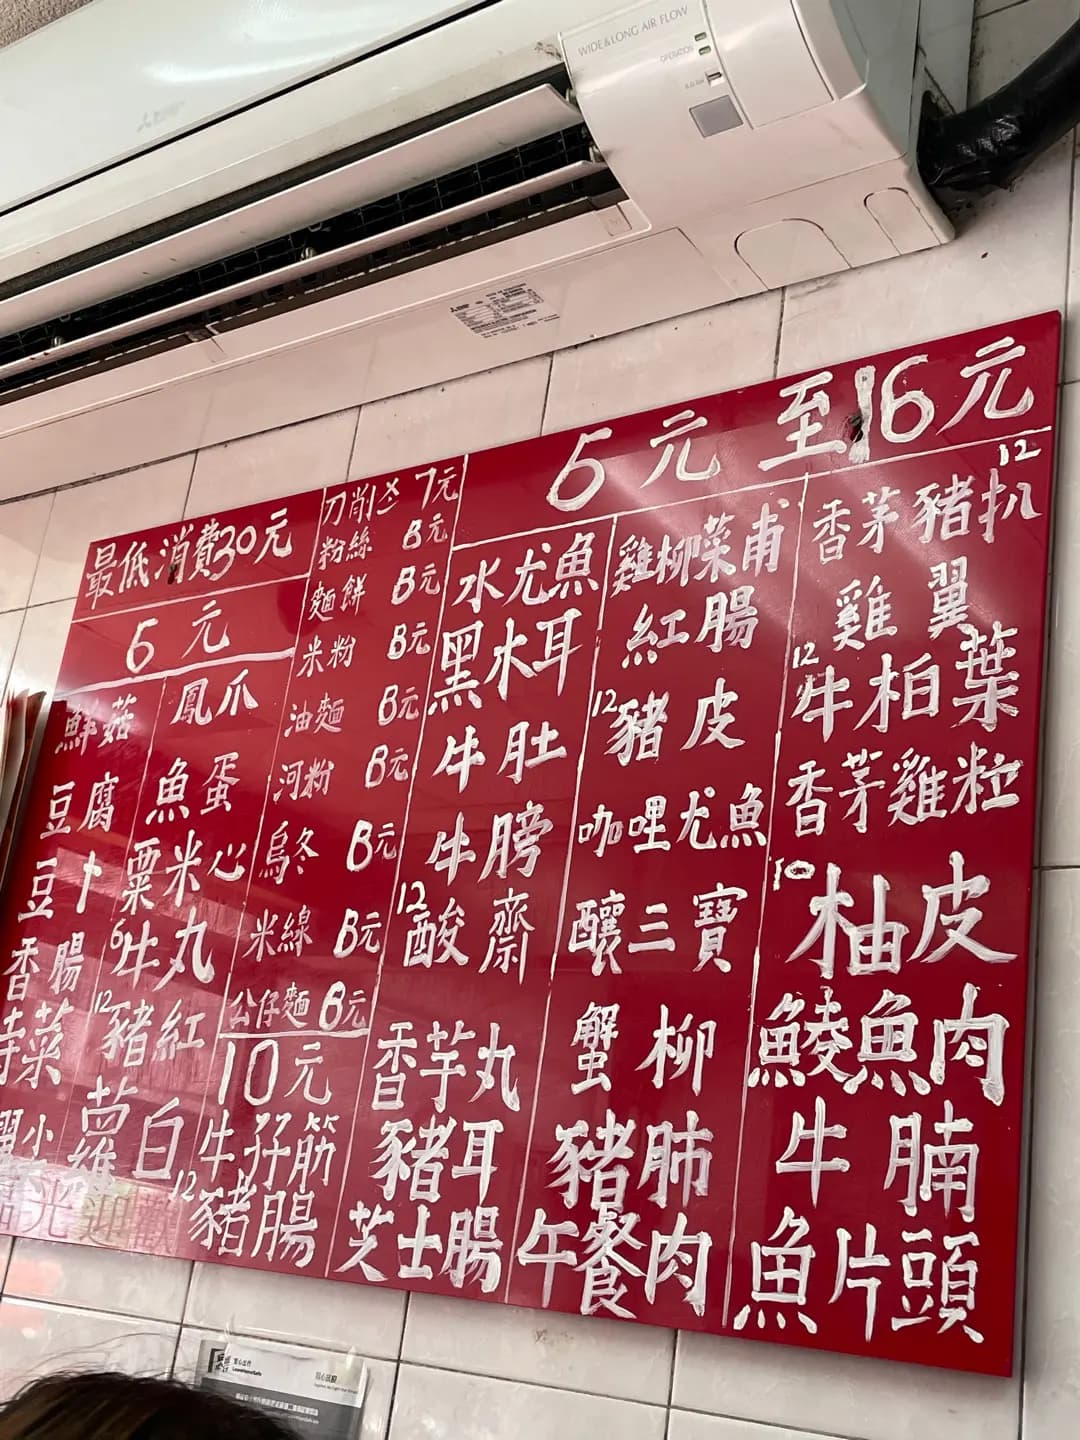 WIDE & LONG AIR FLOW
OPERATION
最低消費30元
6元
鮮菇
豆腐
豆卜
香腸
菜
鳳爪
魚蛋
粟米心
6牛丸
12豬紅
蘿白
刀削㐅 7元
粉絲 8元
麵餅 8元
米粉 8元
油麵 8元
河粉 8元
烏冬 8元
米線 8元
公仔麵 6元
10元
牛孖筋
12豬腸
6元至16元
水尤魚
黑木耳
牛肚
牛膀
12酸齋
香芋丸
豬耳
芝士腸
雞柳菜甫
紅腸
12豬皮
咖哩尤魚
釀三寶
蟹柳
豬肺
午餐肉
12
香茅豬扒
雞翼
12牛柏葉
香茅雞粒
10柚皮
鯪魚肉
牛腩
魚片頭
光迎歡